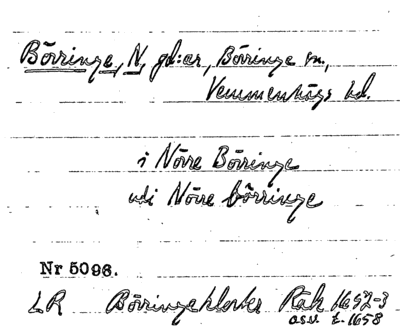 Börringe, N, gd:ar, Börringe sn.,
Vemmenhögs hd.
i Nörre Börringe
udi Nörre börringe
Nr 5098.
LR Börringekloster Räk 1652-3
o.s.v. t. 1658